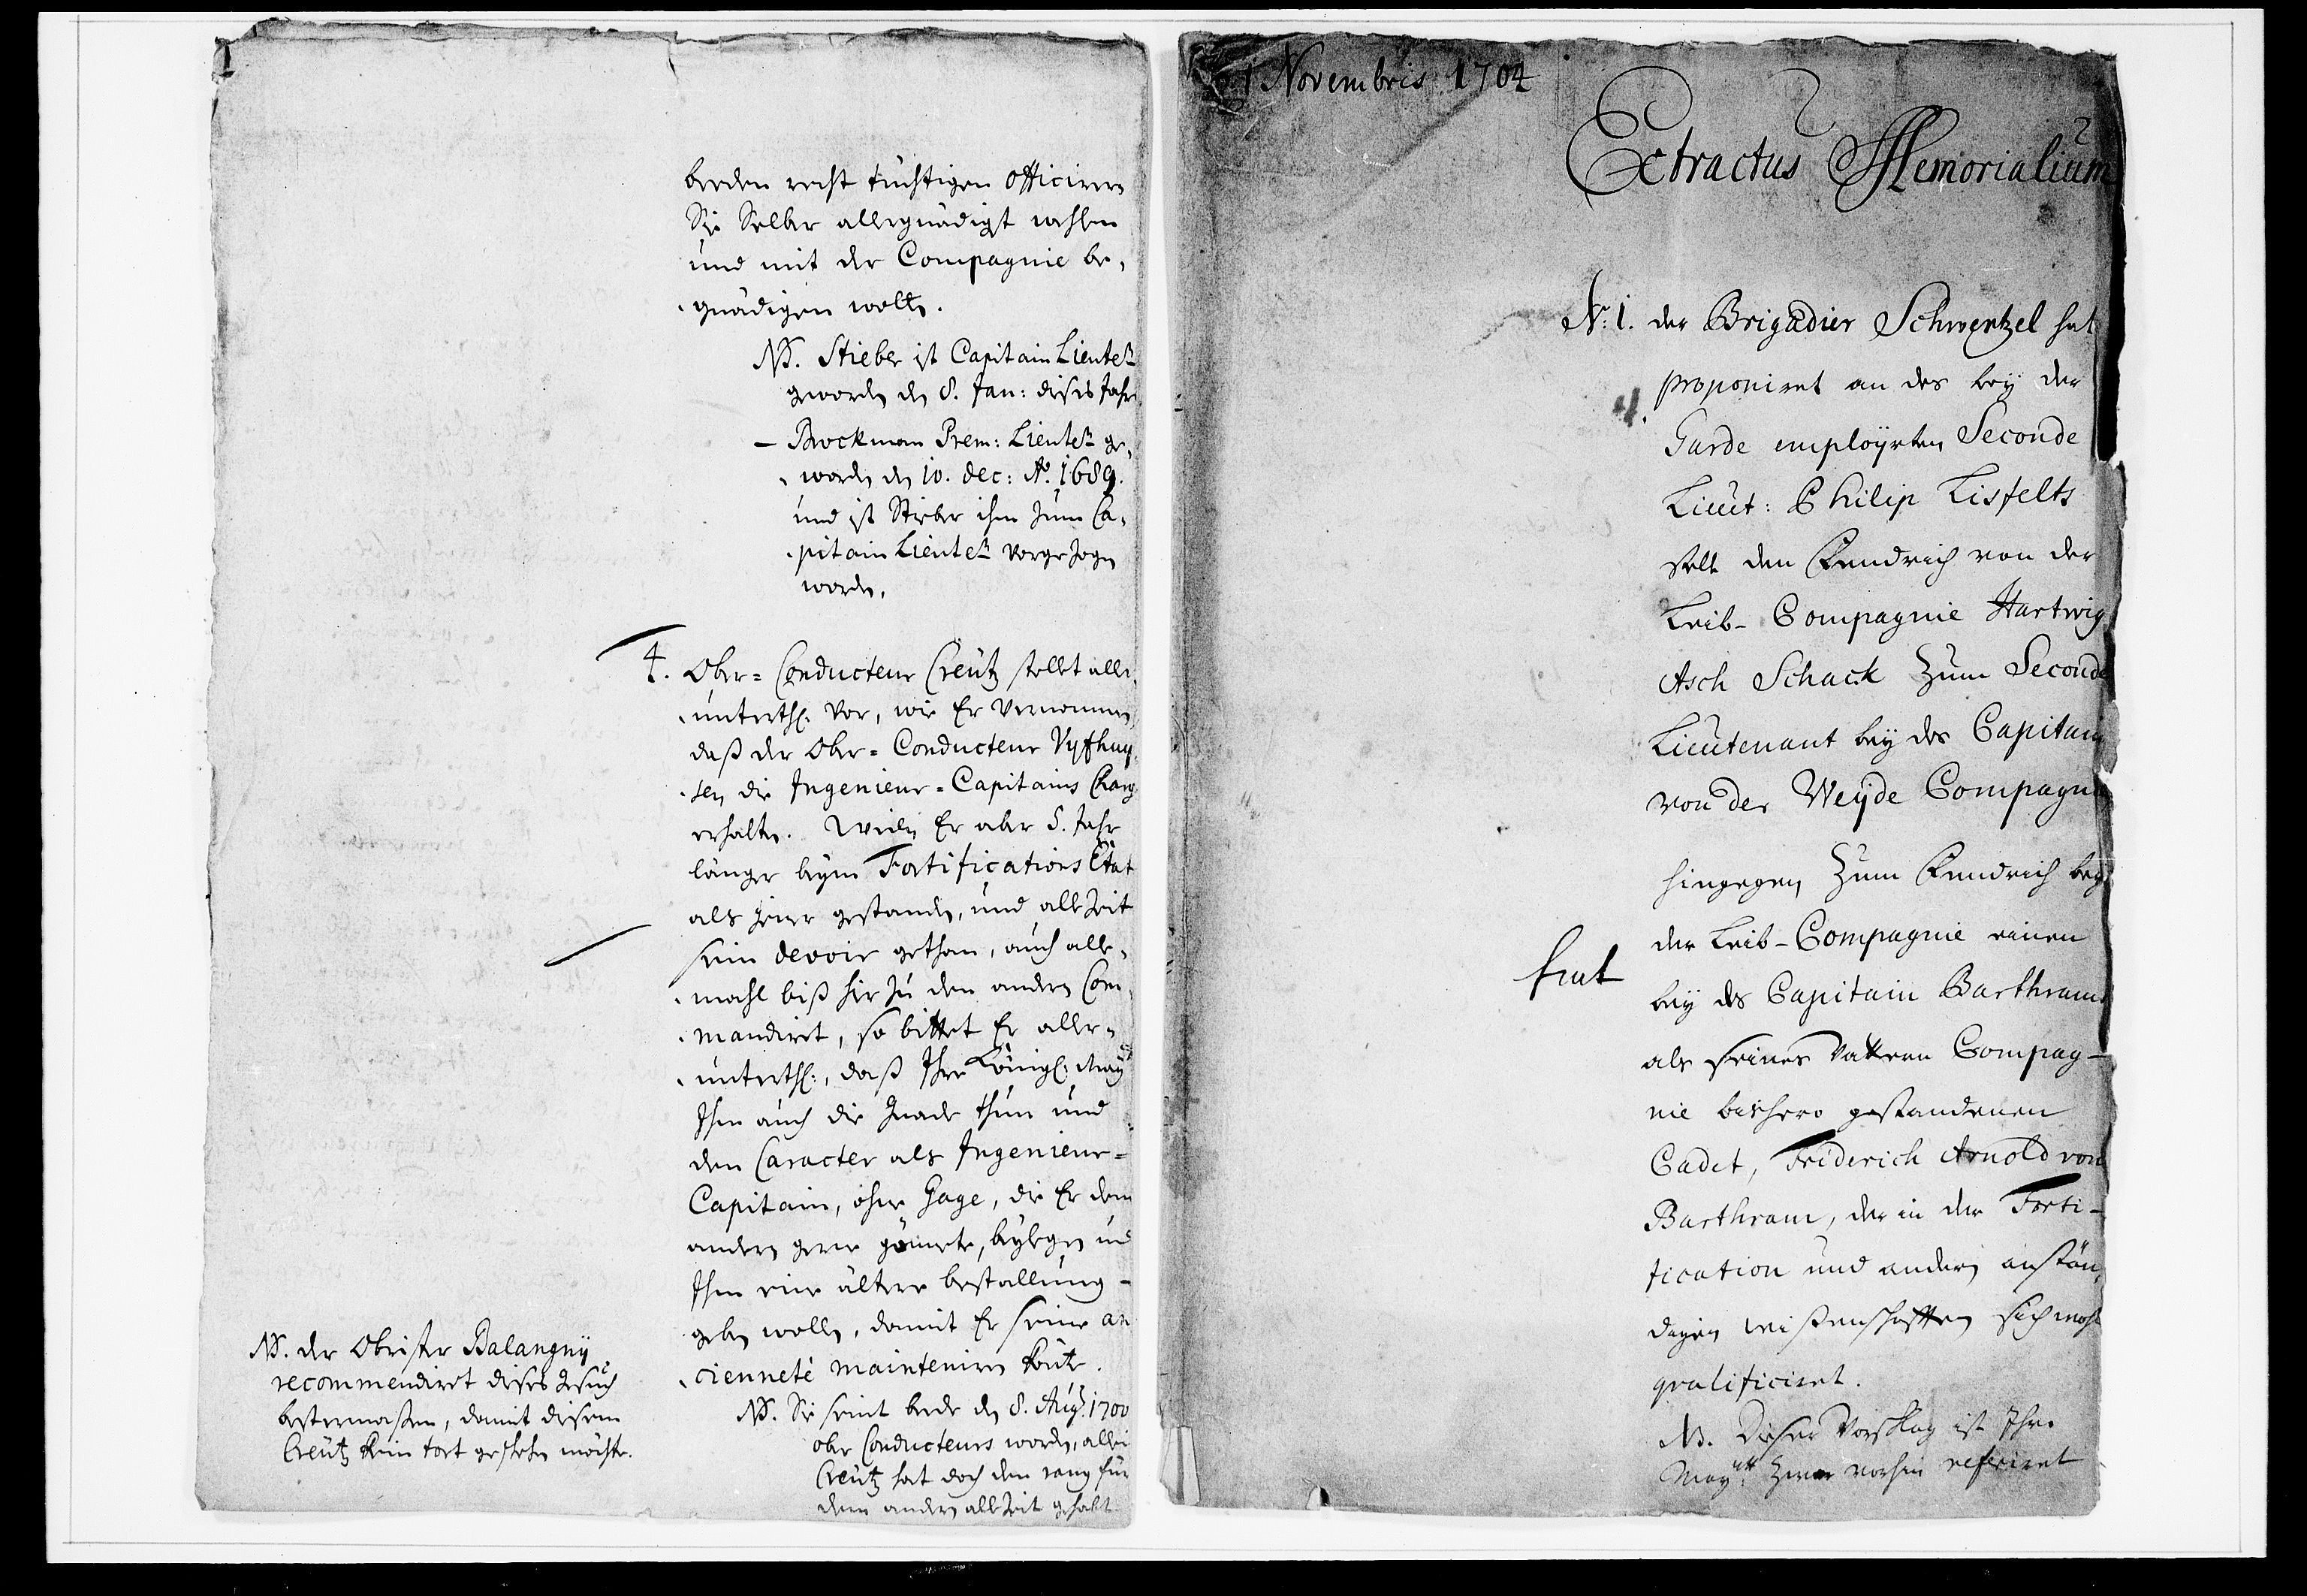 beeden recht tüchtigen Officirern
Sie Selber allergnädigst wehlen
und mit der Compagnie be,
gnädigen wolle.
NB. Stieber ist Capitain Lieutent
geworden den 8. Jan: dieses Jahrs
– Brockman Prem: Lieutent ge,
worden den 10. dec: Ao. 1689.
und ist Stieber ihm zum Ca,
pitain Lieutent vorgezogen
worden.
4. Ober=Conducteur Creütz stellet aller,
unterth. vor, wie Er vernommen,
daß der Ober=Conducteur Vyfhuy,
sen die Ingenieur=Capitains Charg
erhalten. Weilen Er aber 8. Jahr
länger beym Fortifications Etat
als jener gestanden, und allezeit
sein devoir gethan, auch alle,
mahl biß hie zu den andern Com,
mandiret, so bittet Er aller=
unterth:, daß Ihre Königl: May
Ihm auch die Gnade thun und
den Caracter als Ingenieur=
Capitain, ohne Gage, die Er dem
andern gerne gönnete, beylegen und
Ihm eine ältere bestallung
geben wolle, damit Er seine an
cienneté mainteniren könte.
NB. Sie seint beede den 8. Aug. 1700
ober Conducteurs worden, allein
Creütz hat doch den rang für
dem andern allezeit gehabt
NB. der Obrister Balangny
recommendiret dieses gesuch
bestermaßen, damit diesem
Creütz kein tort geschehen möchte.
1 Novembris 1704
Extractus Memorialium
No: 1. der Brigadier Schwentzel hat
proponiret an des bey der
Garde employrten Seconde
Lieut: Philip Lisfelts
stelle den Fendrich von der
Leib-Compagnie Hartwig
Asch Schack zum Seconde
Lieutenant bey des Capitain
von der Weyde Compagnie
hingegen zum Fendrich bey
der Leib-Compagnie einen
bey des Capitain Barthrams
als seines Vattern Compag-
nie bishero gestandenen
Cadet, Friderich Arnold von
Barthram, der in der Forti-
fication und andern anstän,
digen wißenschafften sich wohl
qualificiret.
NB. Dieser Vorschlag ist Ihro
Maytt: zwar vorhin referiret
fiat